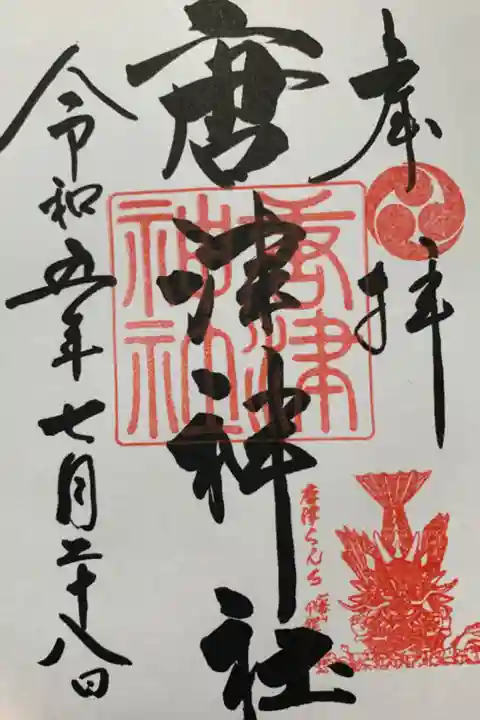 奉拝
唐津神社
唐津神社
唐津くんち
令和五年七月二十八日